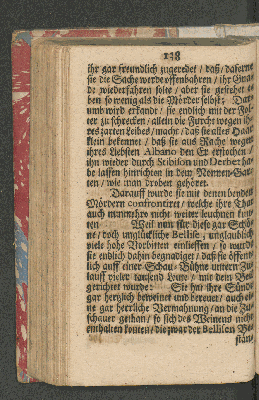 138
ihr gar freundlich zugeredet / daß / daferne
sie die Sache werde offenbahren / ihr Gnade
de wiederfahren solte / aber sie gestehet e-
ben so wenig als die Mörder selbst. Dar-
umb wird erkandt / sie endlich mit der Fol-
ter zu schrecken / allein die Furcht wegen ih-
res zarten Leibes / macht / daß sie alles Haar-
klein bekennet / daß sie aus Rache wegen
ihres Liebsten Albano den Er erstochen /
ihn wieder durch Stibison und Derbet ha-
be lassen hinrichten in dem Nonnen-Gar-
ten / wie man droben gehöret.
Darauff wurde sie mit denen beyden
Mördern confrontiret / welche ihre That
auch nunmehr nicht weiter leuchnen kun-
ten. Weil nun für diese gar Schö-
ne / doch unglückliche Bellise, unglaublich
viele hohe Vorbitten einlieffen / so wurde
sie endlich dahin begnadiget / daß sie öffent-
lich auff einer Schau-Bühne untern Zu-
lauff vieler tausend Leute / mit dem Beil
gerichtet wurde: Sie hat ihre Sünde
gar hertzlich beweinet und bereuet / auch ei-
ne gar herrliche Vermahnung / an die Zu-
schauer gethan / so sich des Weinens nicht
enthalten konten / die zwar der Bellisen Be-
stän-